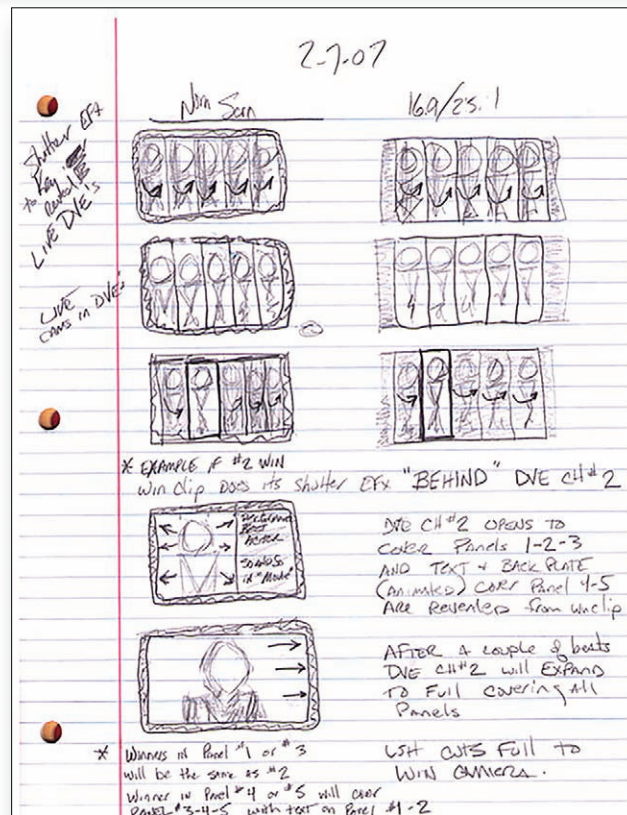 2-7-07
Norm Scrn
16.9/2.35.1
Shutter EFX
to Key
Reveal
LIVE DVE's
LIVE
CAMS IN DVE's
* EXAMPLE IF #2 WIN
WIN clip DOES its shutter EFX "BEHIND" DVE CH#2
Performance
BEST
ACTOR
SO AND SO
in "Movie"
DVE CH#2 OPENS TO
COVER PANELS 1-2-3
AND TEXT + BACK PLATE
(ANIMATED) COVER Panel 4-5
ARE Revealed from win clip
AFTER A couple of beats
DVE CH#2 will EXPAND
TO FULL covering All
Panels
* Winners in Panel #1 or #3
will be the same as #2
Winner in Panel #4 or #5 will cover
PANEL #3-4-5 with text on Panel #1-2
CUTS FULL TO
WIN CAMERA.